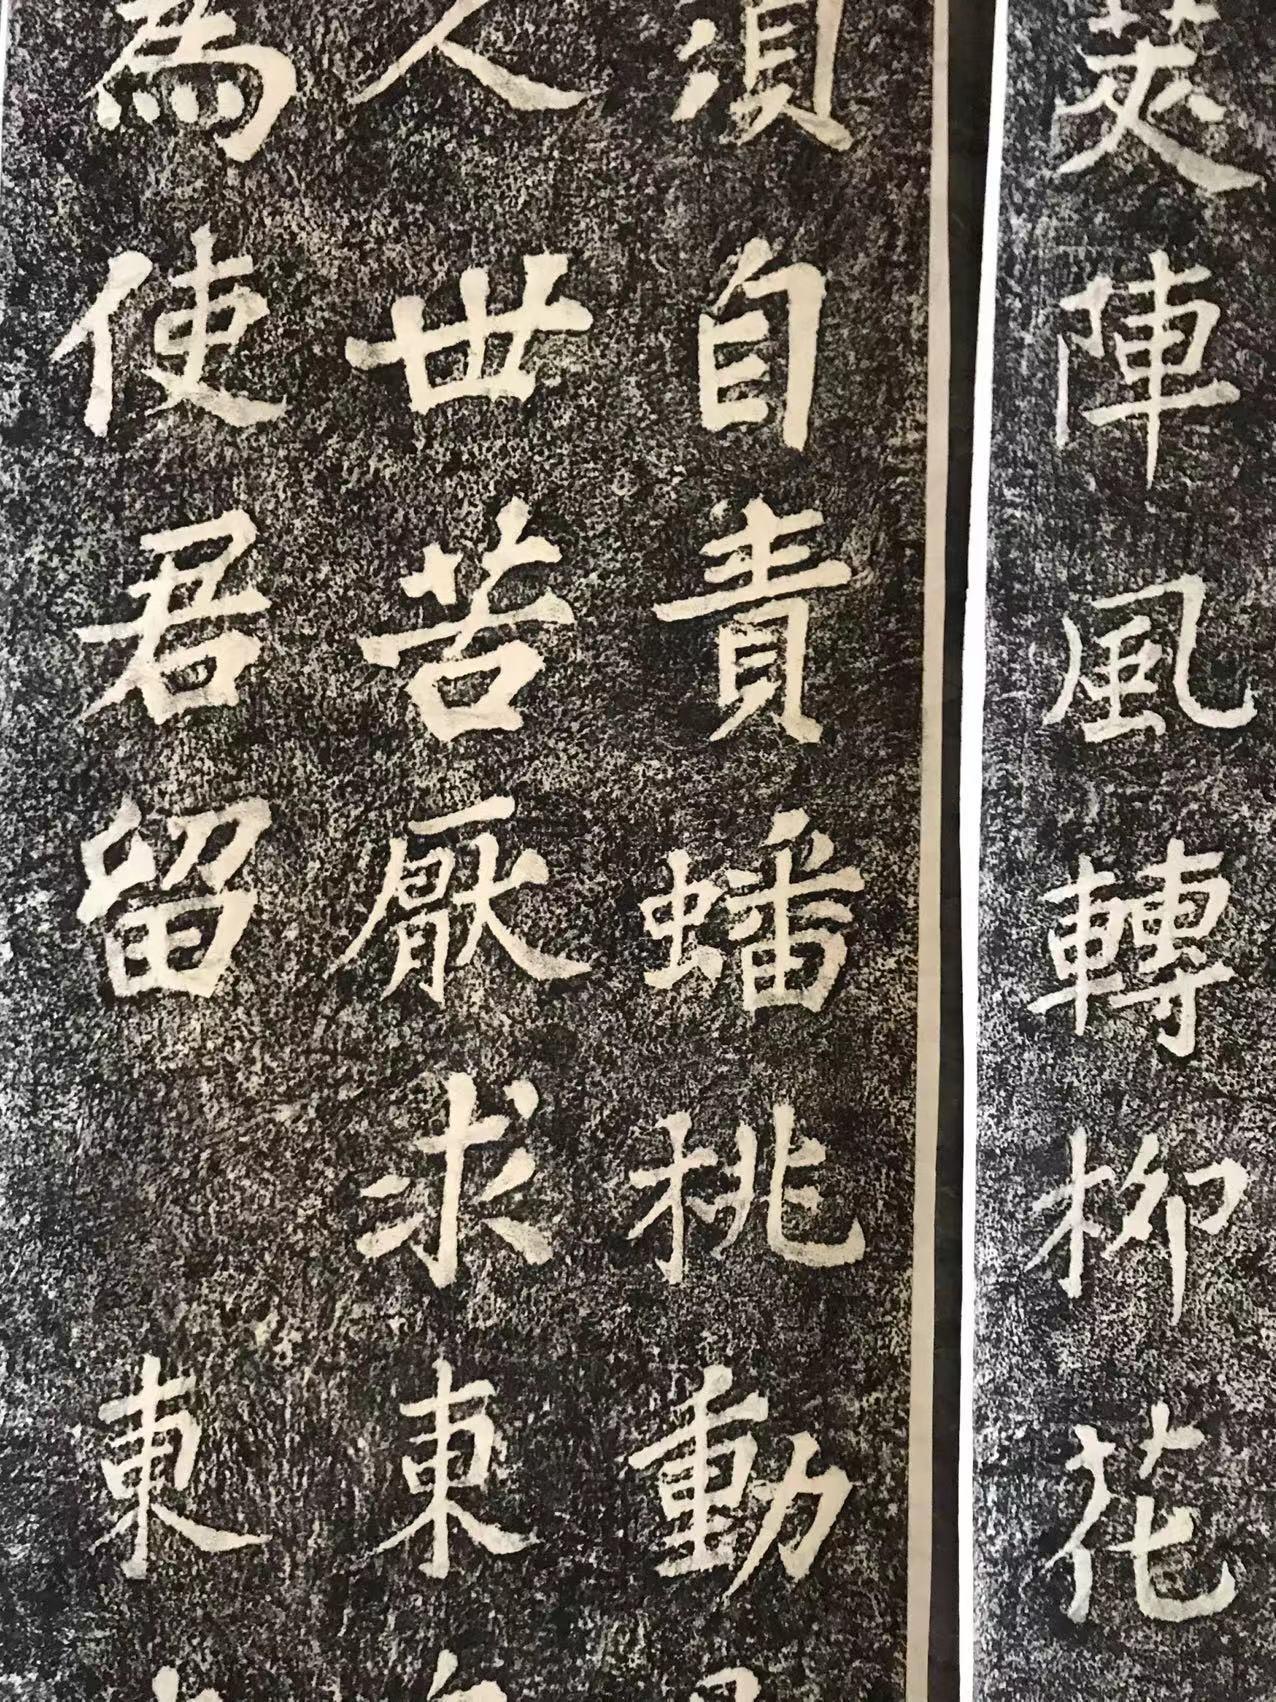 莢陣風轉柳花
須自責蟠桃動
人世苦厭求東
為使君留 東